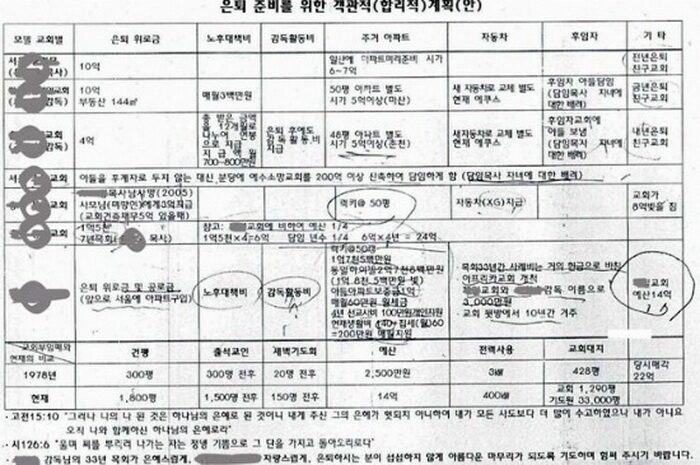 은퇴 준비를 위한 객관적(합리적)계획(안)
모델 교회별 은퇴 위로금 노후대책비 감독활동비 주거 아파트 자동차 후임자 기 타
10억 일산에 아파트미리준비 시가 6~7억 전년은퇴 친구교회
10억 부동산 144㎡ 매월3백만원 50평 아파트 별도 시가 5억이상(마산) 새 자동차로 교체 별도 현재 에쿠스 후임자 아들담임 (담임목사 자녀에 대한 배려) 금년은퇴 친구교회
4억 총 받은 금액을 12개월로 나누어 연봉으로 지급 지급액 월 700~800만원 은퇴 후에도 감독활동비 지급 48평 아파트 별도 시가 5억이상(춘천) 새자동차로 교체 별도 현재 에쿠스 후임자교회에 아들 보냄 (담임목사 자녀에 대한 배려) 내년은퇴 친구교회
아들을 후계자로 두지 않는 대신 분당에 예수소망교회를 200억 이상 신축하여 담임하게 함 (담임목사 자녀에 대한 배려)
목사님사망(2005) 사모님(미망인)에게3억지급 (교회건축재무5억 있을때) 럭키@ 50평 자동차(XG)지급 교회가 8억빚을 짐
1억5천 7년목회( 목사) 참고: 교회에 비하여 예산 1/4
1억5천×4=6억 담임 년수 1/4 6억×4년 = 24억
은퇴 위로금 및 공로금 (앞으로 서울에 아파트구입) 노후대책비 감독활동비
럭키@50평
1억7천5백만원
동일하이빌2억7천8백만원
(1억 8천 5백만원 빚)
아들아파트보증금1억
매월60만원 월세금
4년 선교사비 100만원개인지원
=200만원 매월지원
목회33년간 사례비는 거의 헌금으로 바친
아프리카교회 개척
교회와 감독 이름으로
3,000만원
교회 뒷방에서 10년간 거주
교회 예산14억
교회부임때와 현재의 비교 건평 출석교인 새벽기도회 예산 전력사용 교회대지
1978년 300평 300명 전후 20명 전후 2,500만원 3㎾ 428평 당시매각 22억
현재 1,800평 1,500명 전후 150명 전후 14억 400㎾ 교회 1,290평 기도원 33,000평
· 고전15:10 "그러나 나의 나 된 것은 하나님의 은혜로 된 것이니 내게 주신 그의 은혜가 헛되지 아니하여 내가 모든 사도보다 더 많이 수고하였으나 내가 아니요
오직 나와 함께하신 하나님의 은혜로라"
· 시126:6 "울며 씨를 뿌리러 나가는 자는 정녕 기쁨으로 그 단을 가지고 돌아오리로다"
· 감독님의 33년 목회가 은혜스럽게, 자랑스럽게, 은퇴하시는 분이 섭섭하지 않게 아름다운 마무리가 되도록 기도하며 힘써 주시기 바랍니다.